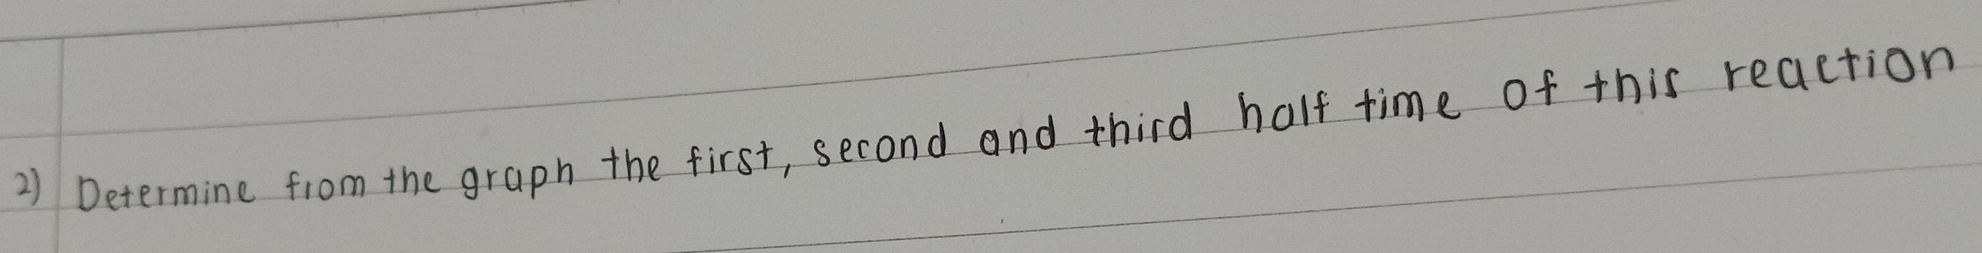 2) Determine from the graph the first, second and third half time of this reaction